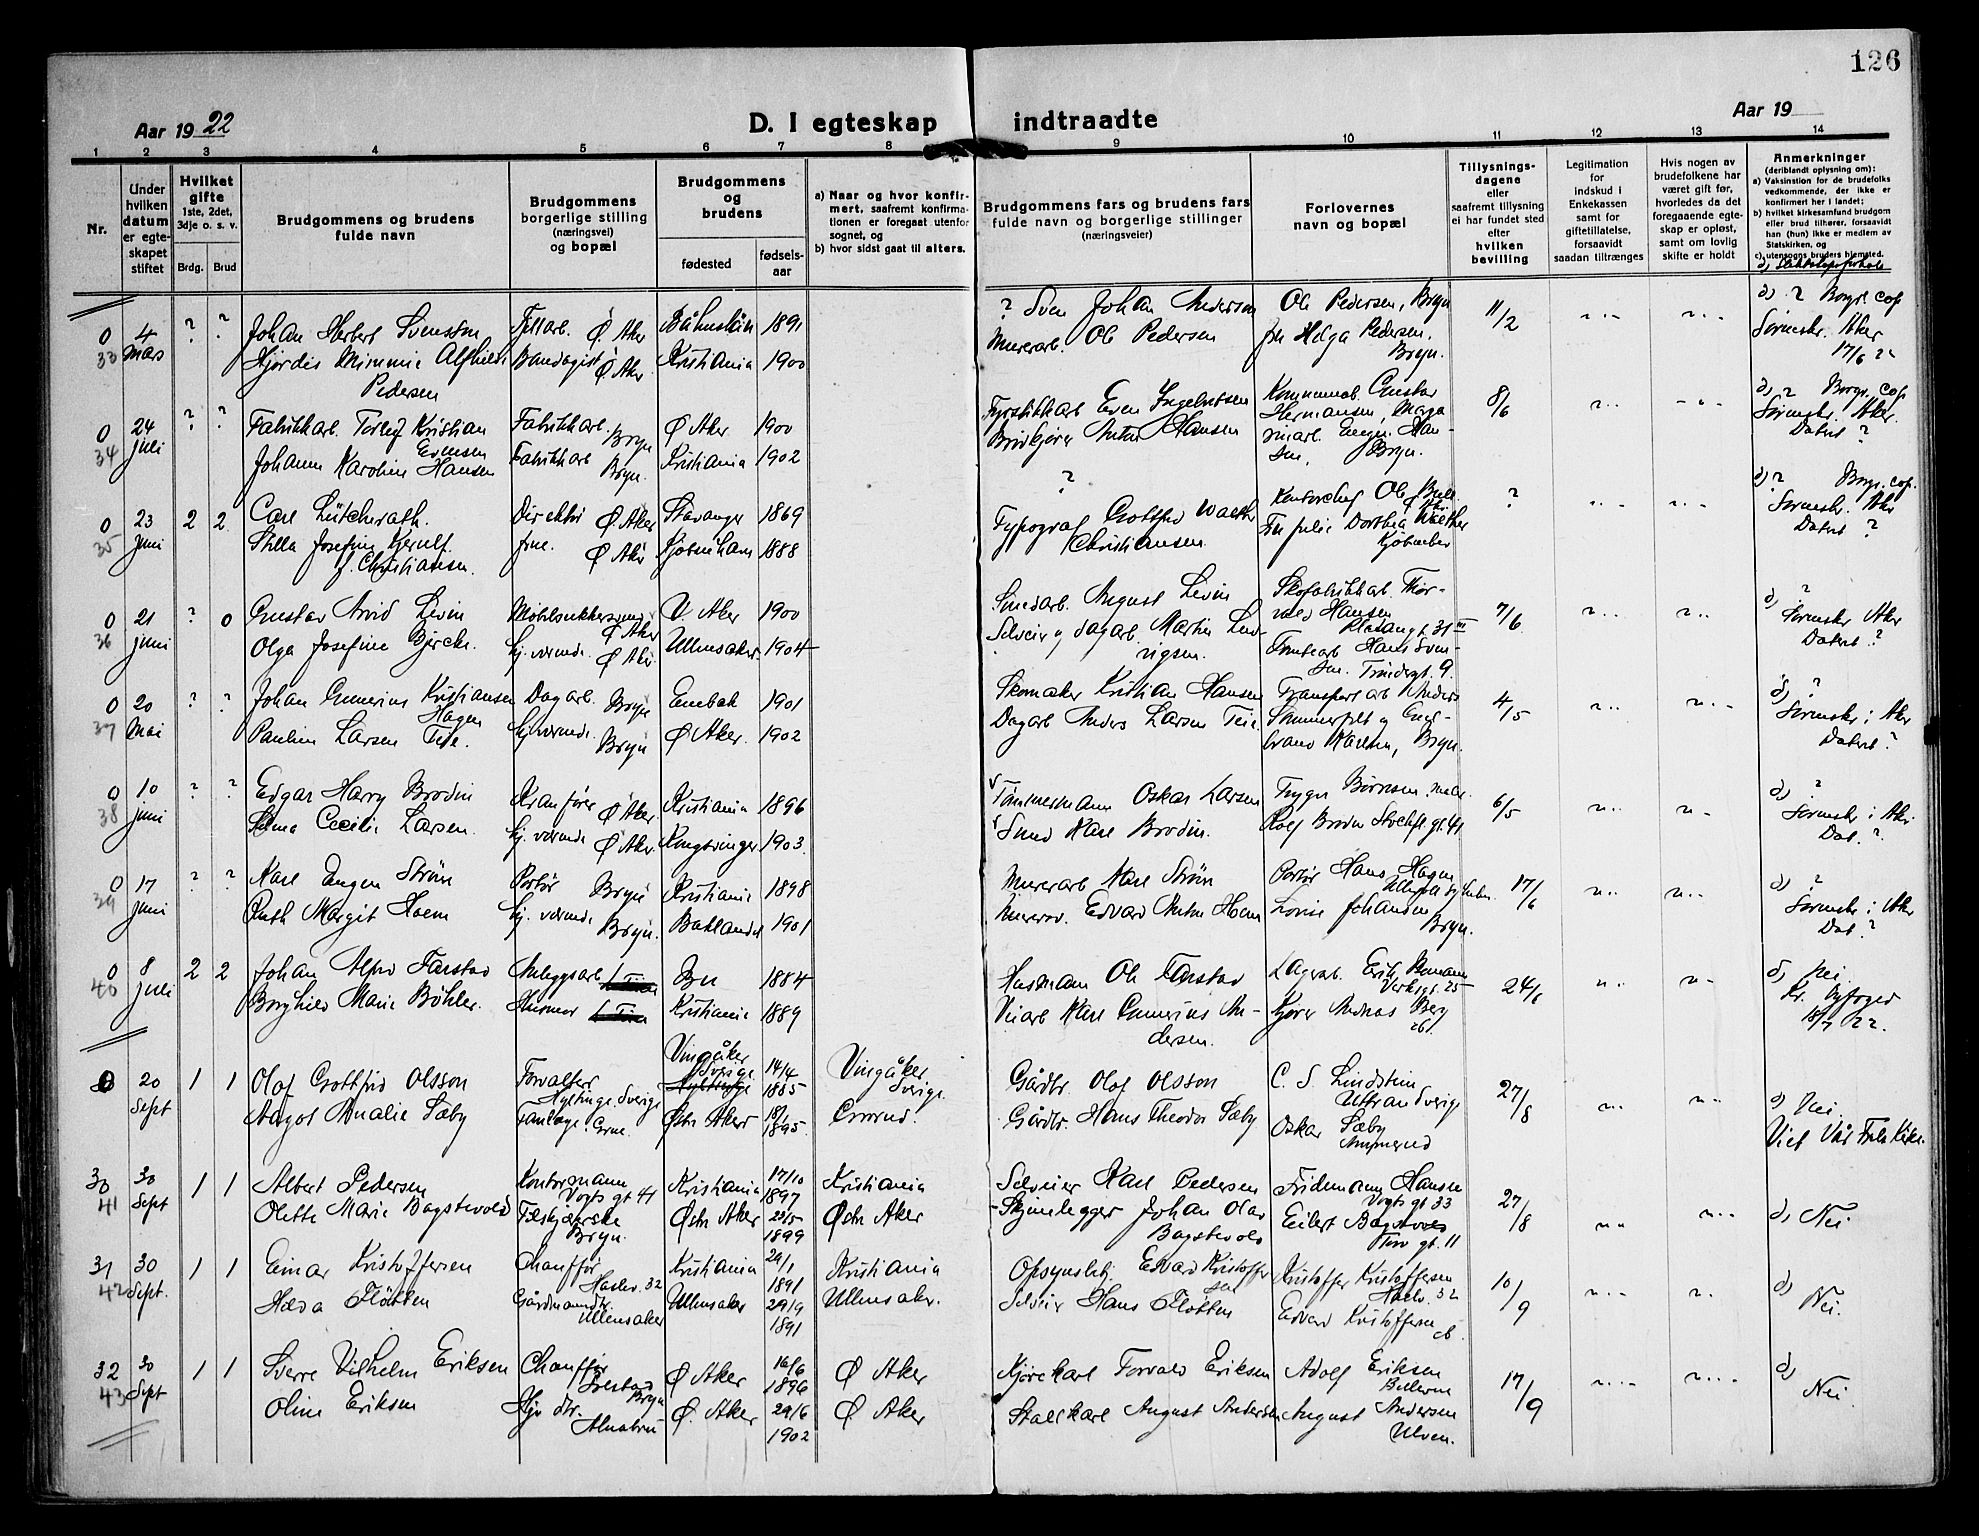 126
Aar 1922
D. I egteskap indtraadte
Aar 19
1 2 3 4 5 6 7 8 9 10 11 12 13 14
Nr.
Under hvilken datum er egteskapet stiftet
Hvilket gifte 1ste, 2det, 3dje o. s. v.
Brdg. Brud
Brudgommens og brudens fulde navn
Brudgommens borgerlige stilling (næringsvei) og bopæl
Brudgommens og brudens
fødested
fødselsaar
a) Naar og hvor konfirmert, saafremt konfirmationen er foregaat utenfor sognet, og
b) hvor sidst gaat til alters.
Brudgommens fars og brudens fars fulde navn og borgerlige stillinger (næringsveier)
Forlovernes navn og bopæl
Tillysningsdagene eller saafremt tillysning ei har fundet sted efter hvilken bevilling
Legitimation for indskud i Enkekassen samt for giftetillatelse, forsaavidt saadan tiltrænges
Hvis nogen av brudefolkene har været gift før, hvorledes da det foregaaende egteskap er opløst, samt om lovlig skifte er holdt
Anmerkninger (deriblandt oplysning om):
a) Vaksinstion for de brudefolks vedkommende, der ikke er konfirmert her i landet;
b) hvilket kirkesamfund brudgom eller brud tilhører, forsaavidt han (hun) ikke er medlem av Statskirken, og
c) utensogns bruders hjemsted.
0 33 4 Mars ? ? Johan Herbert Svensson Ø. Aker 1891 ? Sven Johan Anderson Ole Pedersen, Bryn 11/2 d) ? Borgl. cop.
Hjørdis Mimmie Alfhild Pedersen Bandagist Ø Aker Kristiania 1900 Murerarb. Ole Pedersen frk Helga Pedersen, Bryn. Sorenskr. Aker 17/6 22
0 34 24 juli ? ? Fabrikkarb. Torleif Kristian Evensen Fabrikkarb. Bryn Ø Aker 1900 Fyrstikkarb Even Ingebretsen Kommunearb. Gustav Hermansen, 8/6 d) ? Borgl. cop.
Johanne Karoline Hansen Fabrikkarb Bryn. Kristiania 1902 Anton Hansen Bryn. Sorenskr. Aker. Datert ?
0 35 23 juni 2 2 Carl Lütcherath. Direktør Ø Aker Stavanger 1869 ? Kontorchef Ole ? d) ? Borgl. cop.
Stella Josefine Kjerulf f. Christiansen. frue. Ø Aker Kjøbenhavn 1888 Typograf Gottfred Walther Christiansen. Fru Julie Dorthea Walther Sorenskr. Aker Datert ?
0 36 21 juni ? 0 Gustav Arvid Levin Ø Aker V. Aker 1900 Smedarb. August Levin Skofabrikkarb. Thorvald Hansen 31 III 7/6 d) ?
Olga Josefine Bjercke. hj. værende Ø Aker Ullensaker 1904 Selveier og dagarb Martin Ludvigsen. Hans Svensen. Trondergt. 9. Sorenskr Aker Datert ?
0 37 20 Mai ? ? Johan Gunerius Kristiansen Hagen Dagarb. Bryn Enebak 1901 Skomaker Kristian Hansen Transportarb Anders 4/5 d) ?
Pauline Larsen Teie. hj. værende Bryn Ø Aker. 1902 Dagarb Anders Larsen Teie. Sommerfelt og Engebrand Karlsen, Bryn. Sorenskr i Aker Datert ?
0 38 10 juni ? ? Edgar Harry Brodin Kranfører Ø Aker Kristiania 1896 Tømmermann Oskar Larsen Trygve Børresen 6/5 d) ?
Selma Cecilie Larsen. hj. værende Ø Aker. Kongsvinger 1903. Smed Karl Brodin. Rolf Brodin gt. 41 Sorenskr i Aker Dat. ?
0 39 17 juni ? ? Karl Eugen Strøm Portør Bryn Kristiania 1898 Murerarb Karl Strøm Portør Hans Hagen 17/6 d) ?
Ruth Margit Hoem hj. værende Bryn. Baklandet 1901 Edvard Anton Hoem Lovise Johansen Bryn. Sorenskr i Aker Dat. ?
0 40 8 juli 2 2 Johan Alfred Farstad Anleggsarb Bu 1884 Husmann Ole Farstad Lagerarb. Erik Verksgt. 25 24/6 d) Nei
Borghild Marie Böhler. Husmor Kristiania 1889 Veiarb Karl Gunerius Andersen. Kjører Andreas Berg Kr. Byfoged 18/7 22.
0 20 Sept 1 1 Olof Gottfrid Olsson Forvalter Hyltinge, Sverige Vingåker Sverige 14/4 1885 Vingåker Sverige. Gårdbr. Olof Olsson C. S. Lindstein Sverige 27/8 d) Nei.
Aagot Amalie Sæby Grorud Østre Aker 18/1 1895. Grorud. Gårdbr. Hans Theodor Sæby Oskar Sæby Ammerud Viet Vår Frels Kirke.
30 41 30 Sept 1 1 Albert Pedersen Kontormann Vogts gt 41 Kristiania 17/10 1897 Kristiania Selveier Karl Pedersen Fridemann Hansen Vogts gt 33 27/8 d) Nei
Olette Marie Bagstevold Bryn. Østre Aker 23/5 1899 Østre Aker Skjinnlegger Johan Olav Bagstevold Eilert Bagstevold gt. 11
31 42 30 Sept. 1 1 Einar Kristoffersen Chauffør Haslev. 32 Kristiania 29/1 1891 Kristiania Opsynsbtj. Edvard Kristoffersen Kristoffer Kristoffersen Haslev. 32 10/9 d) Nei.
Hilda Fløtten Gårdmannsdtr. Ullensaker Ullensaker 29/9 1891 Ullensaker. Selveier Hans Fløtten Edvard Kristoffersen
32 43 30 Sept 1 1 Sverre Vilhelm Eriksen Chauffør Bryn Ø Aker 16/6 1896 Ø Aker Kjørekarl Torvald Eriksen Adolf Eriksen 17/9 d) Nei
Oline Eriksen Alnabru Ø. Aker 29/6 1902 Ø Aker Stallkarl August Andersen August Andersen Ulven.